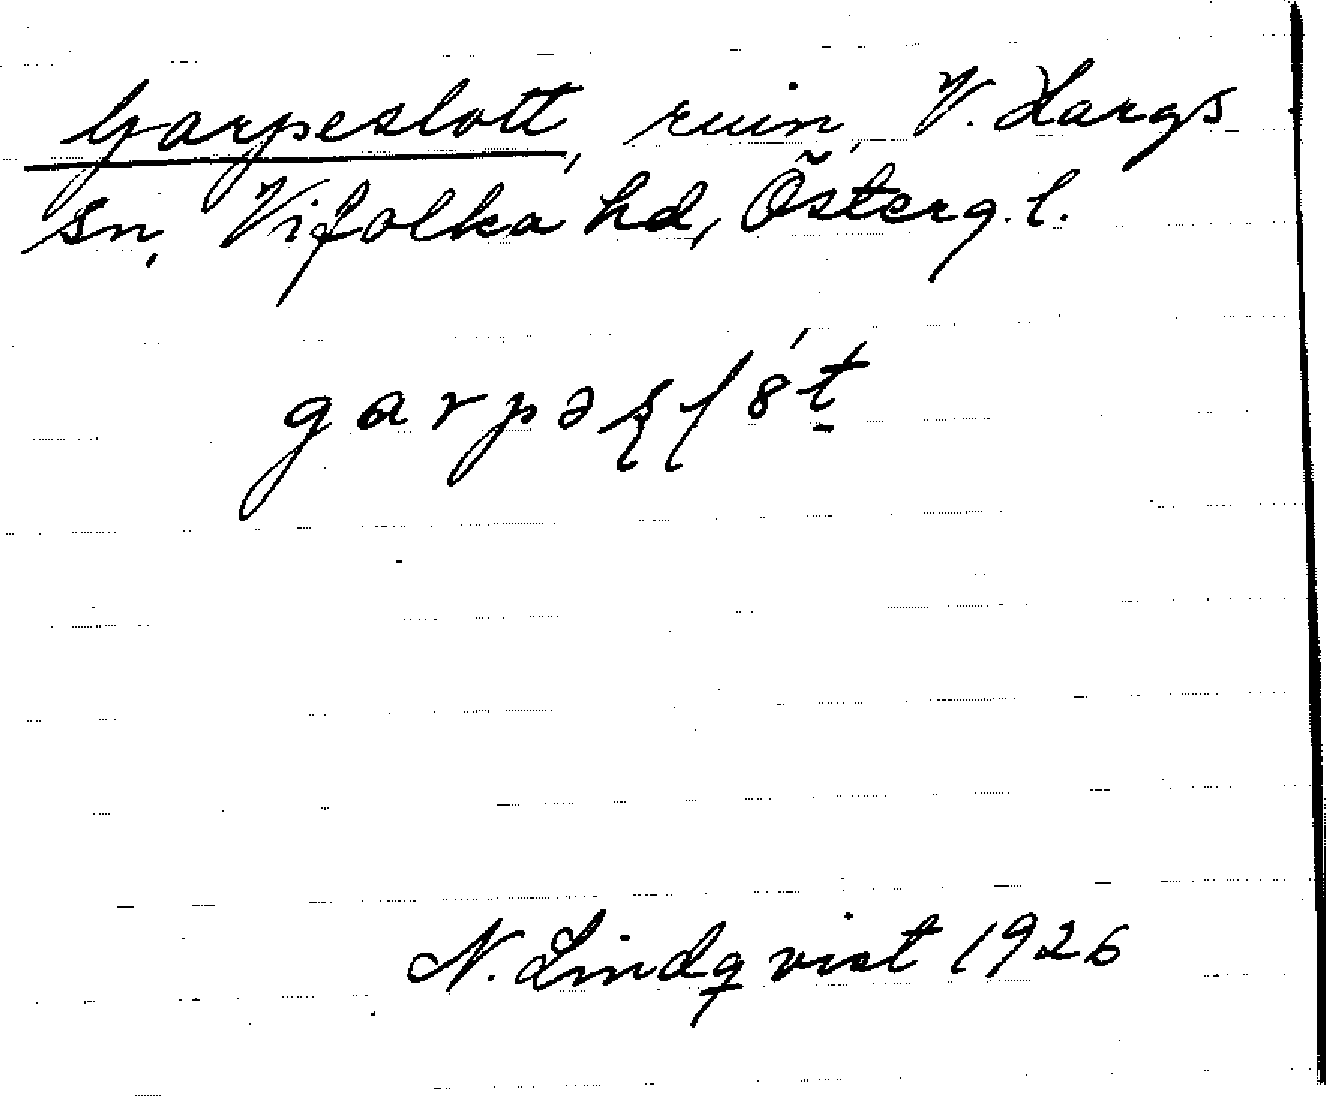 Garpeslott, ruin, V. Hargs
sn, Vifolka hd, Österg. l.
N. Lindqvist 1926